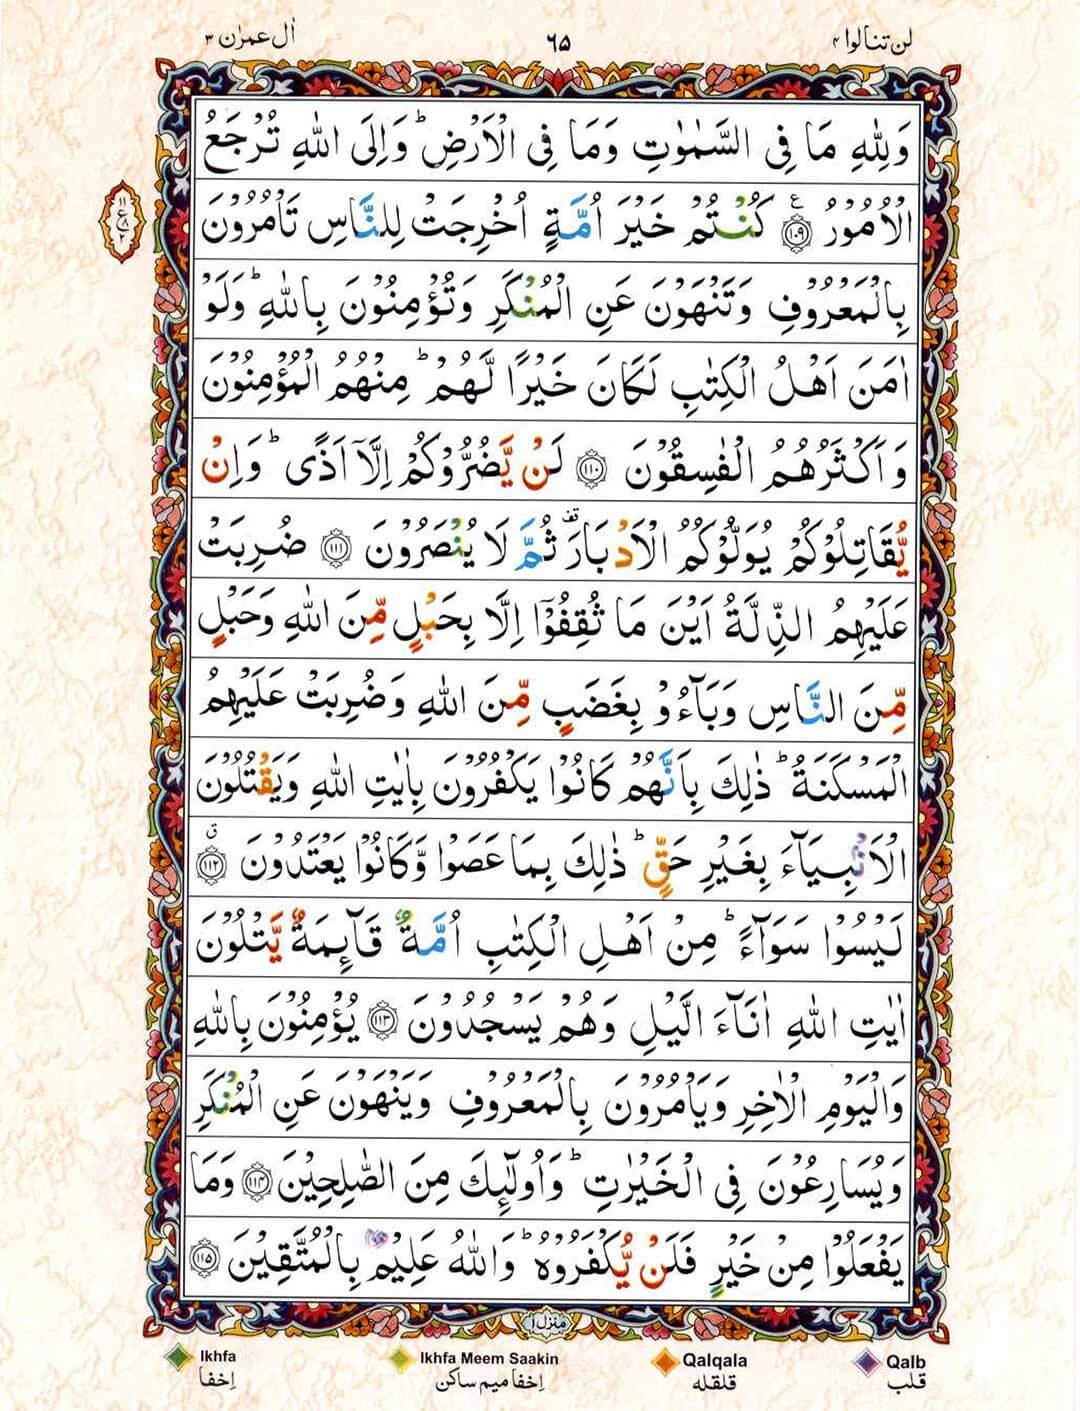 لن تنالوا ۴ ۶۵ اٰل عمرٰن ۳
وَلِلّٰهِ مَا فِی السَّمٰوٰتِ وَمَا فِی الْاَرْضِ ؕ وَاِلَی اللّٰهِ تُرْجَعُ
الْاُمُوْرُ ﴿۱۰۹﴾ ع كُنْتُمْ خَیْرَ اُمَّةٍ اُخْرِجَتْ لِلنَّاسِ تَاْمُرُوْنَ
۱۱ ع ۸ ۲
بِالْمَعْرُوْفِ وَتَنْهَوْنَ عَنِ الْمُنْكَرِ وَتُؤْمِنُوْنَ بِاللّٰهِ ؕ وَلَوْ
اٰمَنَ اَهْلُ الْكِتٰبِ لَكَانَ خَیْرًا لَّهُمْ ؕ مِنْهُمُ الْمُؤْمِنُوْنَ
وَاَكْثَرُهُمُ الْفٰسِقُوْنَ ﴿۱۱۰﴾ لَنْ یَّضُرُّوْكُمْ اِلَّاۤ اَذًی ؕ وَاِنْ
یُّقَاتِلُوْكُمْ یُوَلُّوْكُمُ الْاَدْبَارَ ۟ قف ثُمَّ لَا یُنْصَرُوْنَ ﴿۱۱۱﴾ ضُرِبَتْ
عَلَیْهِمُ الذِّلَّةُ اَیْنَ مَا ثُقِفُوْۤا اِلَّا بِحَبْلٍ مِّنَ اللّٰهِ وَحَبْلٍ
مِّنَ النَّاسِ وَبَآءُوْ بِغَضَبٍ مِّنَ اللّٰهِ وَضُرِبَتْ عَلَیْهِمُ
الْمَسْكَنَةُ ؕ ذٰلِكَ بِاَنَّهُمْ كَانُوْا یَكْفُرُوْنَ بِاٰیٰتِ اللّٰهِ وَیَقْتُلُوْنَ
الْاَنْۢبِیَآءَ بِغَیْرِ حَقٍّ ؕ ذٰلِكَ بِمَا عَصَوْا وَّكَانُوْا یَعْتَدُوْنَ ﴿۱۱۲﴾ ق
لَیْسُوْا سَوَآءً ؕ مِنْ اَهْلِ الْكِتٰبِ اُمَّةٌ قَآىِٕمَةٌ یَّتْلُوْنَ
اٰیٰتِ اللّٰهِ اٰنَآءَ الَّیْلِ وَهُمْ یَسْجُدُوْنَ ﴿۱۱۳﴾ یُؤْمِنُوْنَ بِاللّٰهِ
وَالْیَوْمِ الْاٰخِرِ وَیَاْمُرُوْنَ بِالْمَعْرُوْفِ وَیَنْهَوْنَ عَنِ الْمُنْكَرِ
وَیُسَارِعُوْنَ فِی الْخَیْرٰتِ ؕ وَاُولٰٓىِٕكَ مِنَ الصّٰلِحِیْنَ ﴿۱۱۴﴾ وَمَا
یَفْعَلُوْا مِنْ خَیْرٍ فَلَنْ یُّكْفَرُوْهُ ؕ وَاللّٰهُ عَلِیْمٌۢ بِالْمُتَّقِیْنَ ﴿۱۱۵﴾
منزل ۱
Ikhfa Ikhfa Meem Saakin Qalqala Qalb
اِخفا اِخفا میم ساکن قلقله قلب